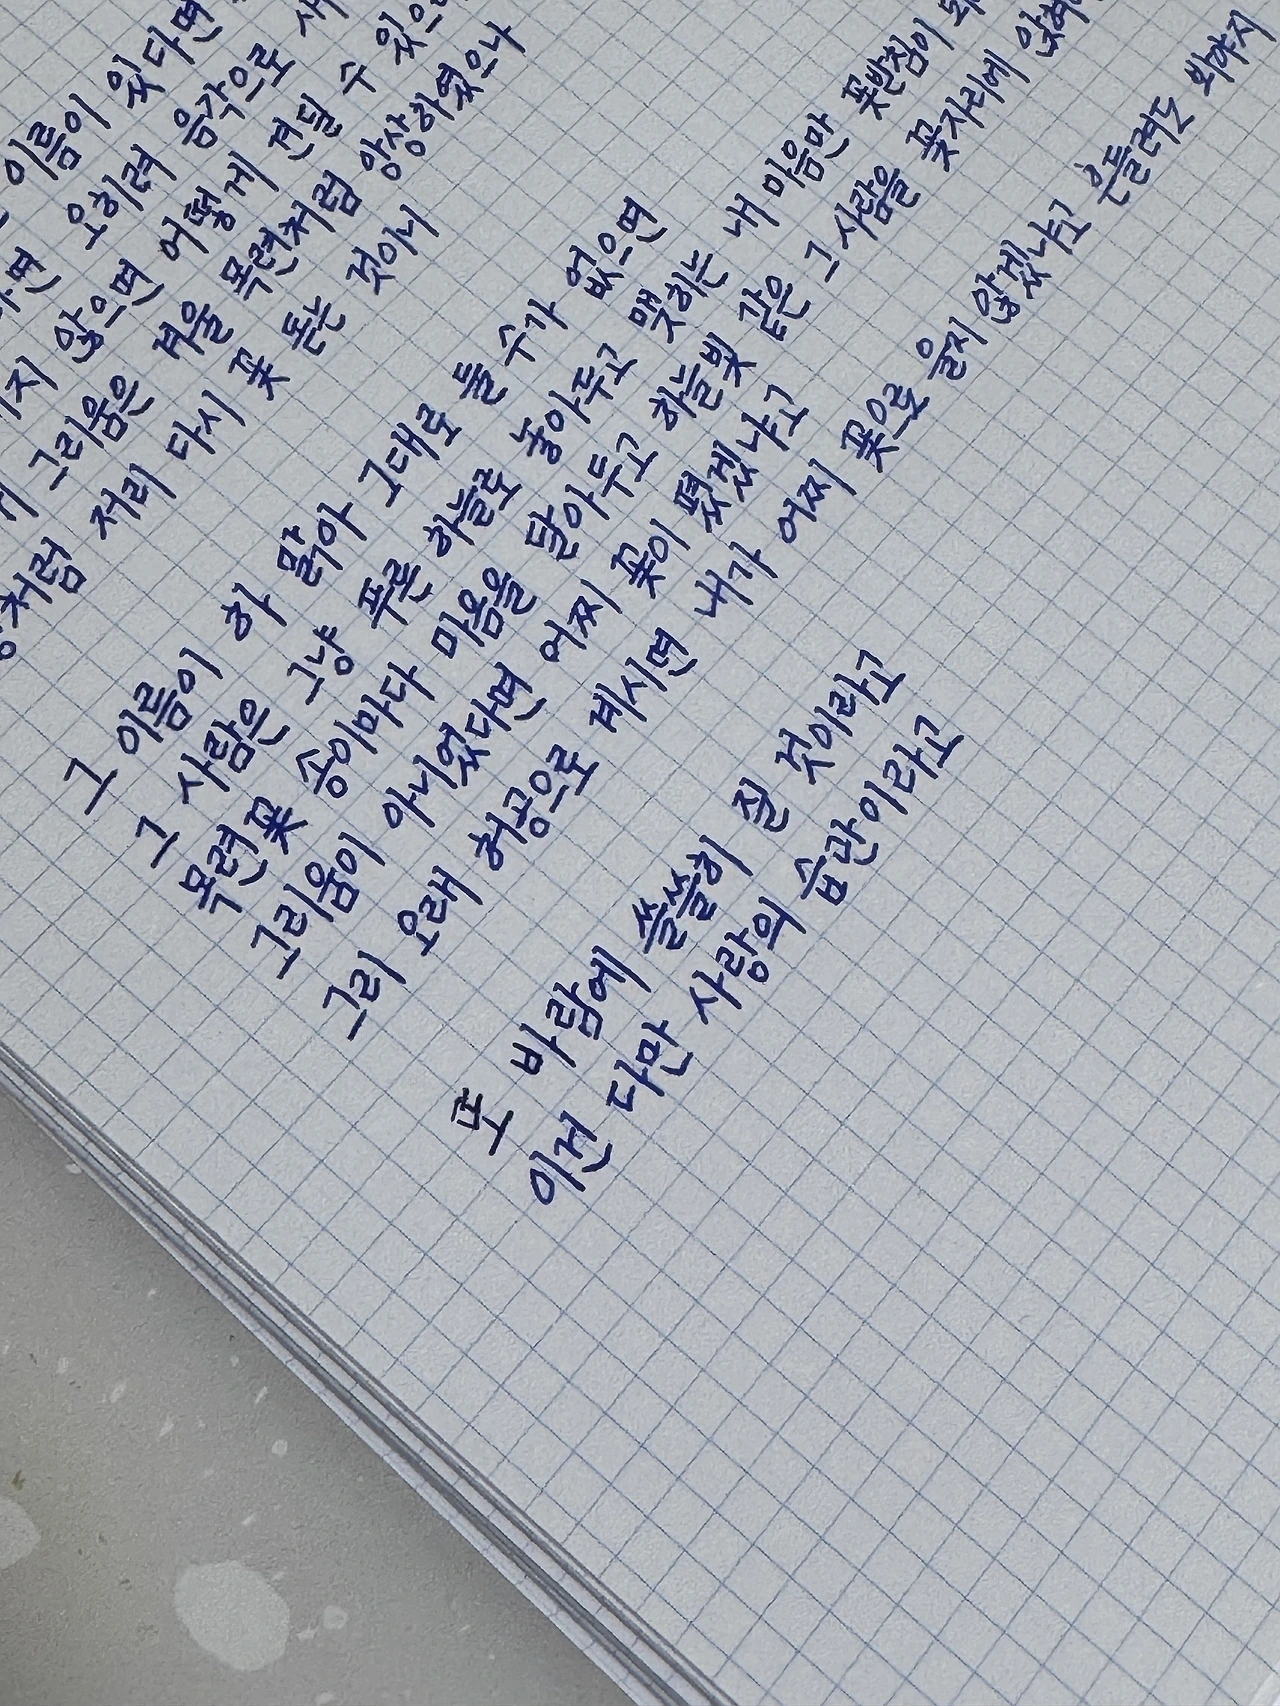 이름이 있다면
오히려 음각으로 새
않으면 어떻게 견딜 수 있으
그리움은 겨울 목련처럼 앙상하였으나
처럼 저리 다시 꽃 돋는 것이니
그 이름이 하 맑아 그대로 둘 수가 없으면
그 사람은 그냥 푸른 하늘로 놓아두고 맺히는 내 마음만 꽃받침이 되
목련꽃 송이마다 마음을 달아두고 하늘빛 같은 그 사람을 꽃자리에 앉혀
그리움이 아니었다면 어찌 꽃이 폈겠냐고
그리 오래 허공으로 계시면 내가 어찌 꽃으로 울지 않겠냐고 흔들려도 봐야지
또 바람에 쓸쓸히 질 것이라고
이건 다만 사랑의 습관이라고